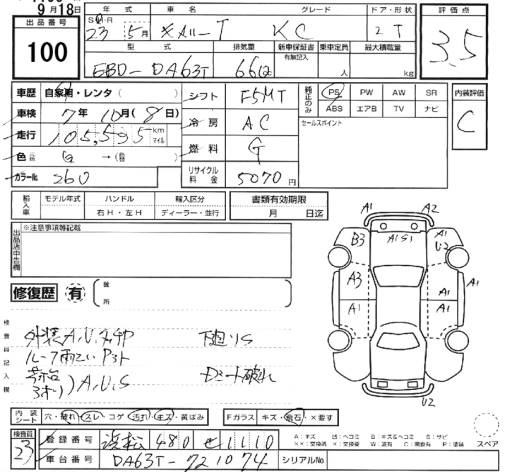 9月18日
出品番号
100
年式 車名 グレード ドア・形状 評価点
23 5月 キャリーT KC 2 T 3.5
型式 排気量 新車保証書 乗車定員 最大積載量
有無記入
EBD-DA63T 660 人 kg
車歴 自家用・レンタ( ) シフト F5MT 純正のみ PS PW AW SR 内装評価
ABS エアB TV ナビ C
車検 7年10月(8日) 冷房 AC セールスポイント
走行 105,595 km マイル 燃料 G
色 白 →( )
カラー№ 26U リサイクル料金 5070円
輸入車 モデル年式 ハンドル 輸入区分 書類有効期限
右H・左H ディーラー・並行 月 日迄
出品店申告欄 ※注意事項等記載
修復歴 有 箇所
検査員記入欄
外装A.U.スリキ 下廻りS
ルーフ雨どいPヌケ
荷台 A.U.S シート破れ
3方
A1 A2
B3 A1S1 A1
U2
A3 A1
A1 A1
U2
内装シート 穴・破れ・スレ・コゲ・汚れ・キズ・黄ばみ Fガラス キズ・飛石・×要す スペア
検査員 23
登録番号 浜松 480 せ 1110
車台番号 DA63T-721074 シリアルNo.